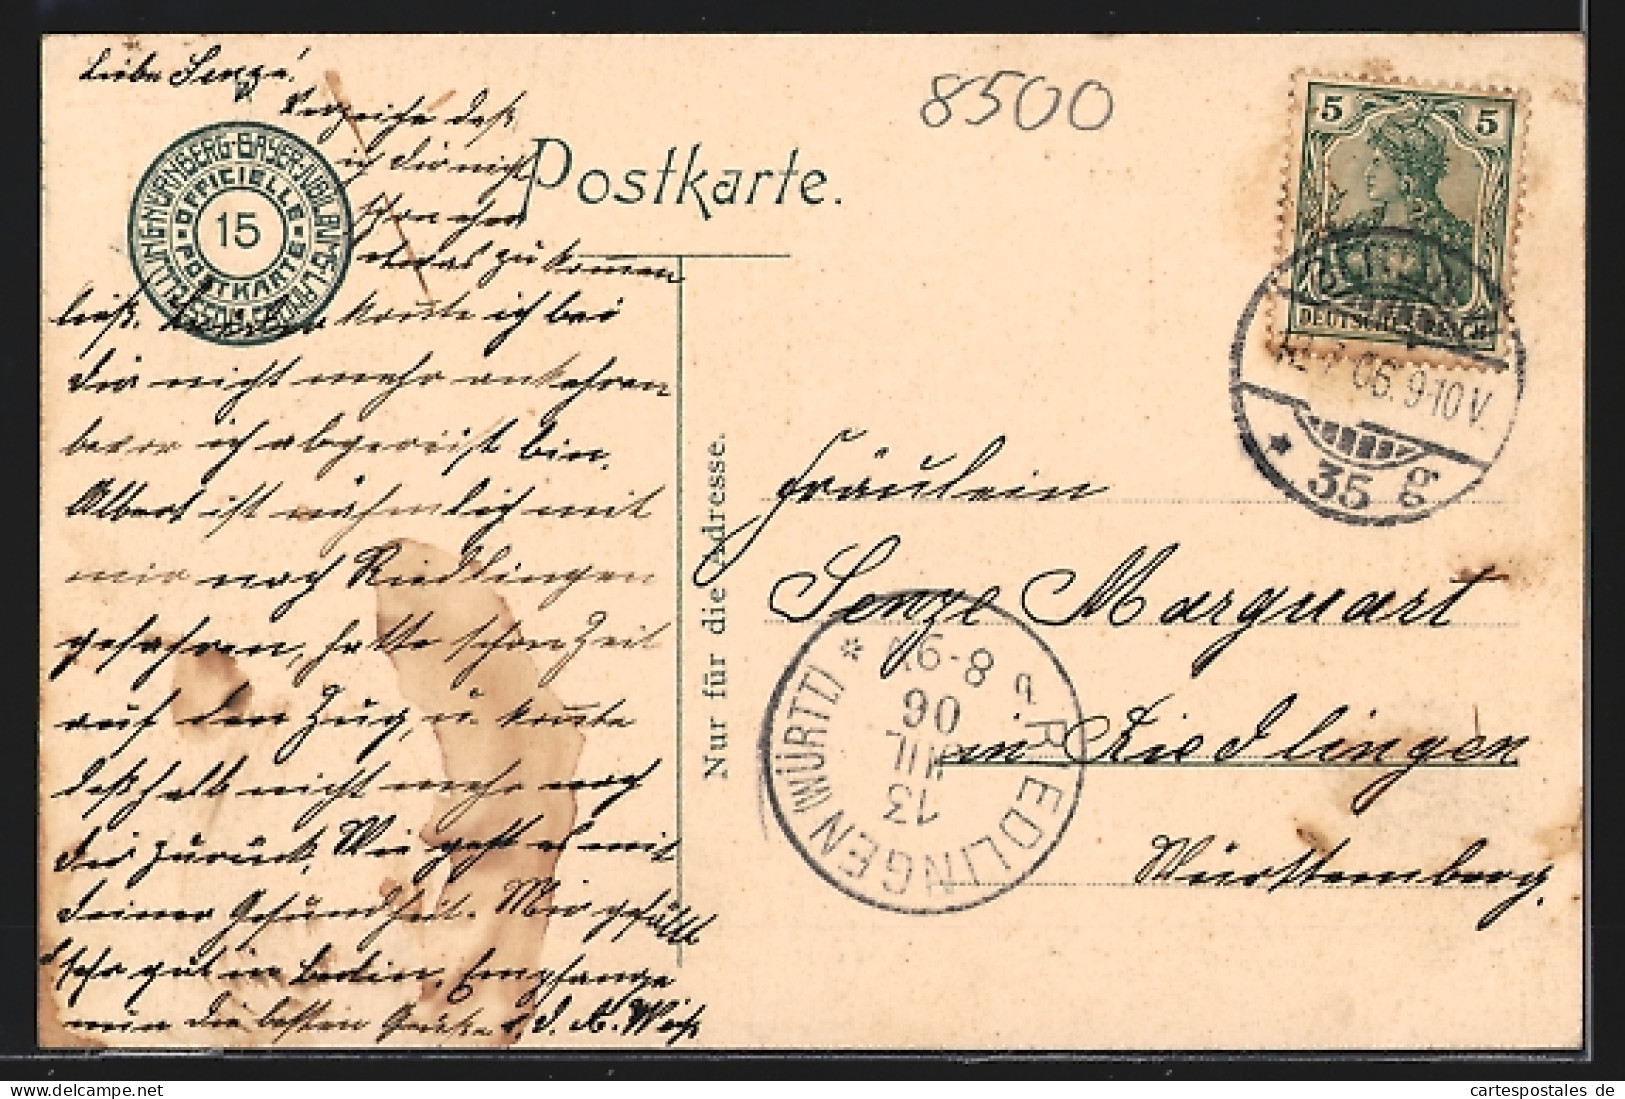 Liebe Senze!
Verzeihe daß
ich dir nicht
schon eher
etwas zukommen
ließ. konnte ich bei
dir nicht mehr ankehren
bevor ich abgereist bin.
Albert ist nähmlich mit
mir nach Riedlingen
gefahren, hatte schon Zeit
auf den Zug, u. konnte
deßhalb nicht mehr nach
dir zurück. Wie geht es mit
deiner Gesundheit. Mir gefällt
sehr gut in Berlin. Empfange
nun die besten Grüße v. d. A. Weiß
NÜRNBERG·BAYER·JUBILÄUMS-LANDESAUSSTELLUNG
OFFICIELLE
15
POSTKARTE
Postkarte.
8500
5 5
DEUTSCHES REICH
BERLIN
12 7 06. 9-10 V.
* 35 g
Nur für die Adresse.
Fräulein
Senze Marquart
in Riedlingen
Württemberg.
RIEDLINGEN (WÜRTT.) *
13
JUL
06
N.6-8
cartespostales de